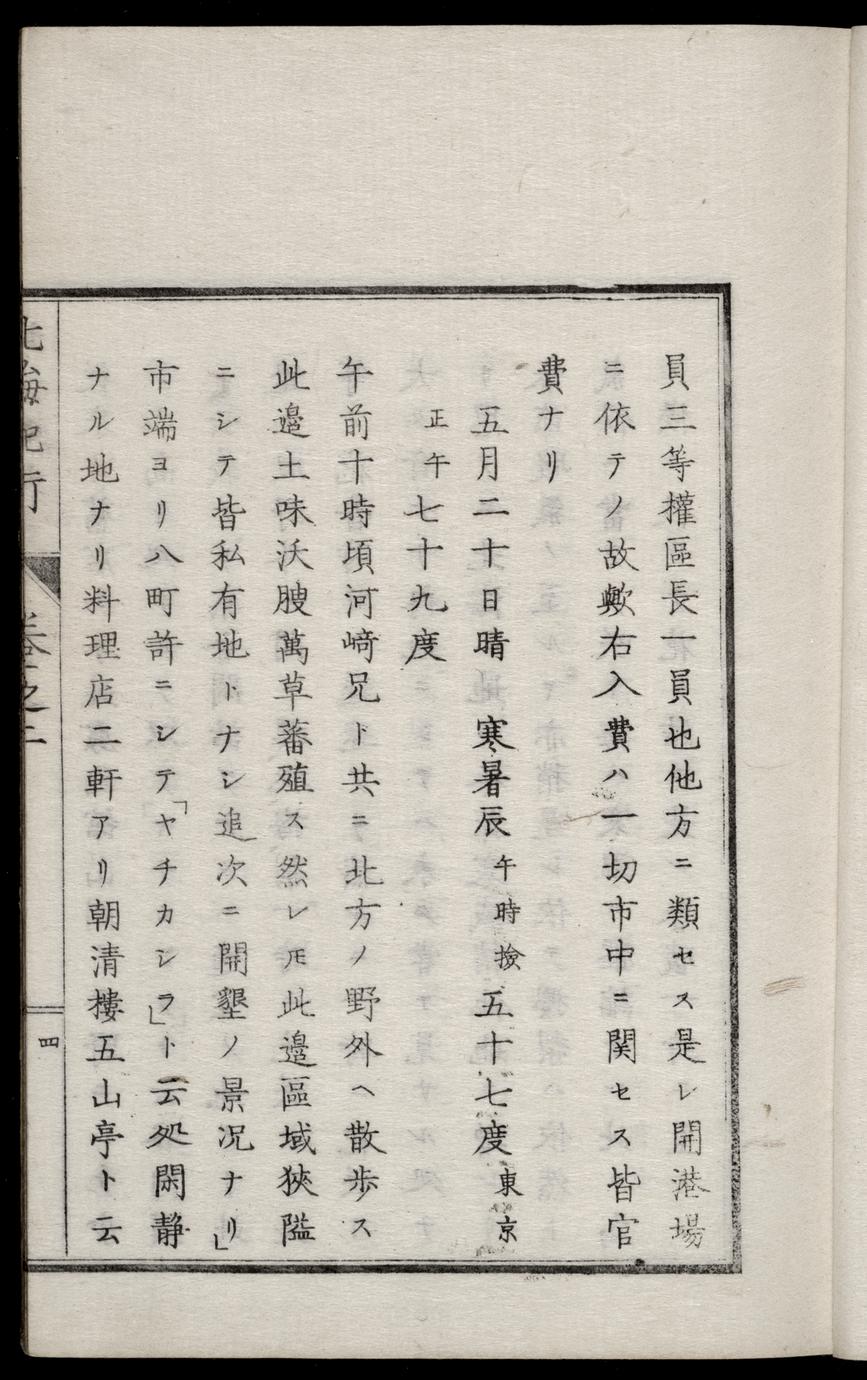 員三等權區長一員也他方ニ類セス是レ開港場
ニ依テノ故歟右入費ハ一切市中ニ関セス皆官
費ナリ
五月二十日晴 寒暑辰午時撿五十七度東京
正午七十九度
午前十時頃河﨑兄ト共ニ北方ノ野外ヘ散歩ス
此邉土味沃腴萬草蕃殖ス然レ𪜈此邉區域狹隘
ニシテ皆私有地トナシ追次ニ開墾ノ景况ナリ」
市端ヨリ八町許ニシテ「ヤチカシラ」ト云処閑静
ナル地ナリ料理店二軒アリ朝清樓五山亭ト云
北海紀行 卷之二 四